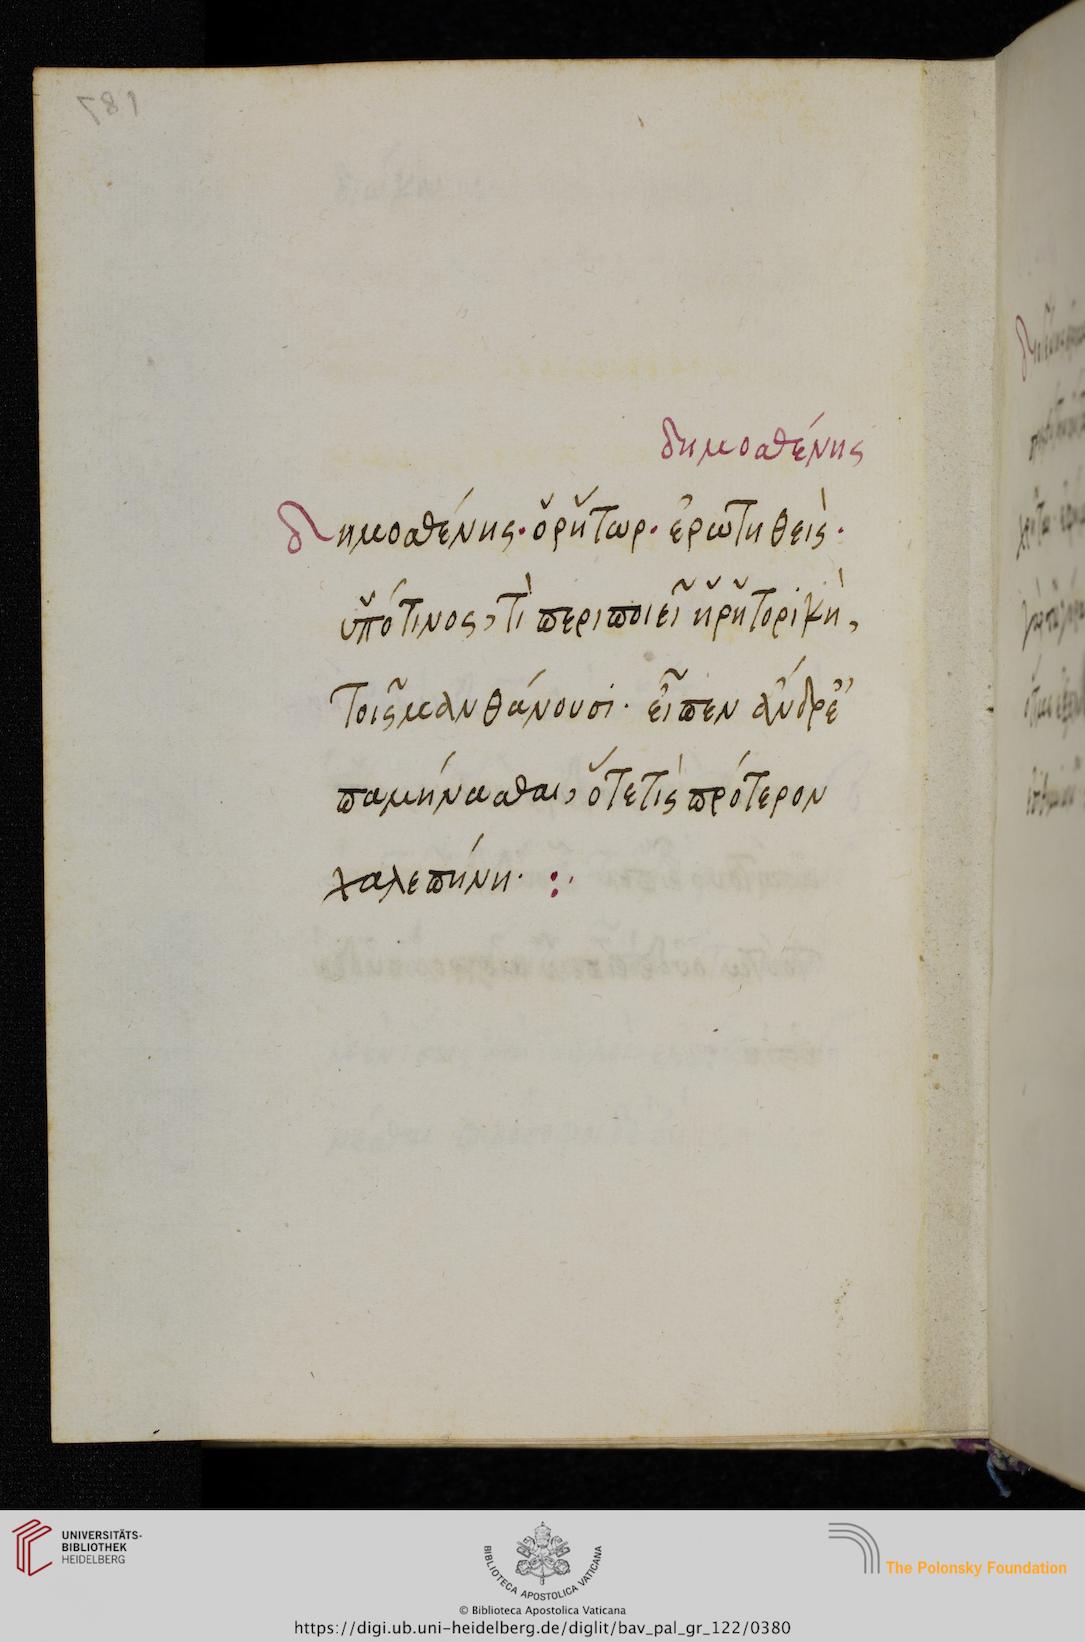 187
δημοσθένης
δημοσθένης· ὁ ῥήτωρ· ἐρωτηθεὶς·
ὑπό τινος, τὶ περιποιεῖ ἡ ῥητορικὴ,
τοῖς μανθάνουσι· εἶπεν ἄνδρ' ἐ
παμύνασθαι, ὅτε τὶς πρότερον
χαλεπήνη· :·
UNIVERSITÄTS-
BIBLIOTHEK
HEIDELBERG
BIBLIOTECA APOSTOLICA VATICANA
The Polonsky Foundation
© Biblioteca Apostolica Vaticana
https://digi.ub.uni-heidelberg.de/diglit/bav_pal_gr_122/0380